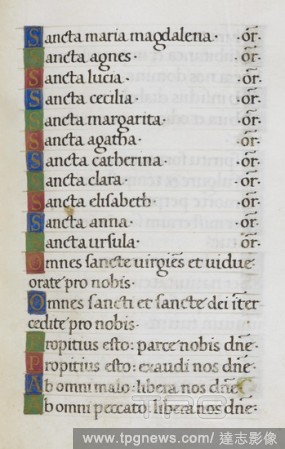 Sancta maria magdalena · or̄.
Sancta agnes · or̄.
Sancta lucia · or̄.
Sancta cecilia · or̄.
Sancta margarita · or̄.
Sancta agatha · or̄.
Sancta catherina · or̄.
Sancta clara · or̄.
Sancta elisabeth · or̄.
Sancta anna · or̄.
Sancta ursula · or̄.
Omnes sancte virgīes et uidue
orate pro nobis ·
Omnes sancti et sancte dei īter
cedite pro nobis ·
Propitius esto: parce nobis dn̄e·
Propitius esto: exaudi nos dn̄e·
Ab omni malo: libera nos dn̄e·
Ab omni peccato: libera nos dn̄e·
TPG
www.tpgnews.com/ 達志影像